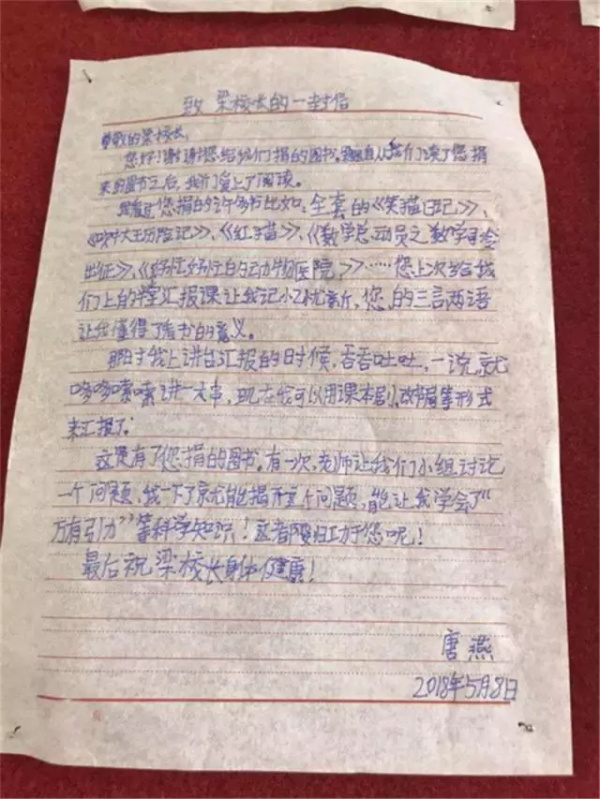 致 梁校长的一封信
尊敬的梁校长:
您好!谢谢您给我们捐的图书。自从我们读了您捐
来的图书之后,我们爱上了阅读。
我看过您捐的许多书比如:全套的《笑猫日记》、
大王历险记》、《红猫》、《数学总动员之数学司令
出征》、《好忙好忙的动物医院》……您上次给我
们上的半堂汇报课让我记忆犹新,您的三言两语
让我懂得了看书的意义。
那时我上讲台汇报的时候,吞吞吐吐,一说就
哆哆嗦嗦讲一大串,现在我可以用课本剧、改书眉等形式
来汇报了。
这是有了您捐的图书。有一次,老师让我们小组讨论
一个问题,我一下子就能揭开这个问题,能让我学会了“
万有引力”等科学知识!这都归功于您呢!
最后祝梁校长身体健康!
唐燕
2018年5月8日